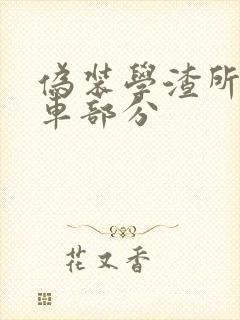 偽裝學渣所
車部分
花又香